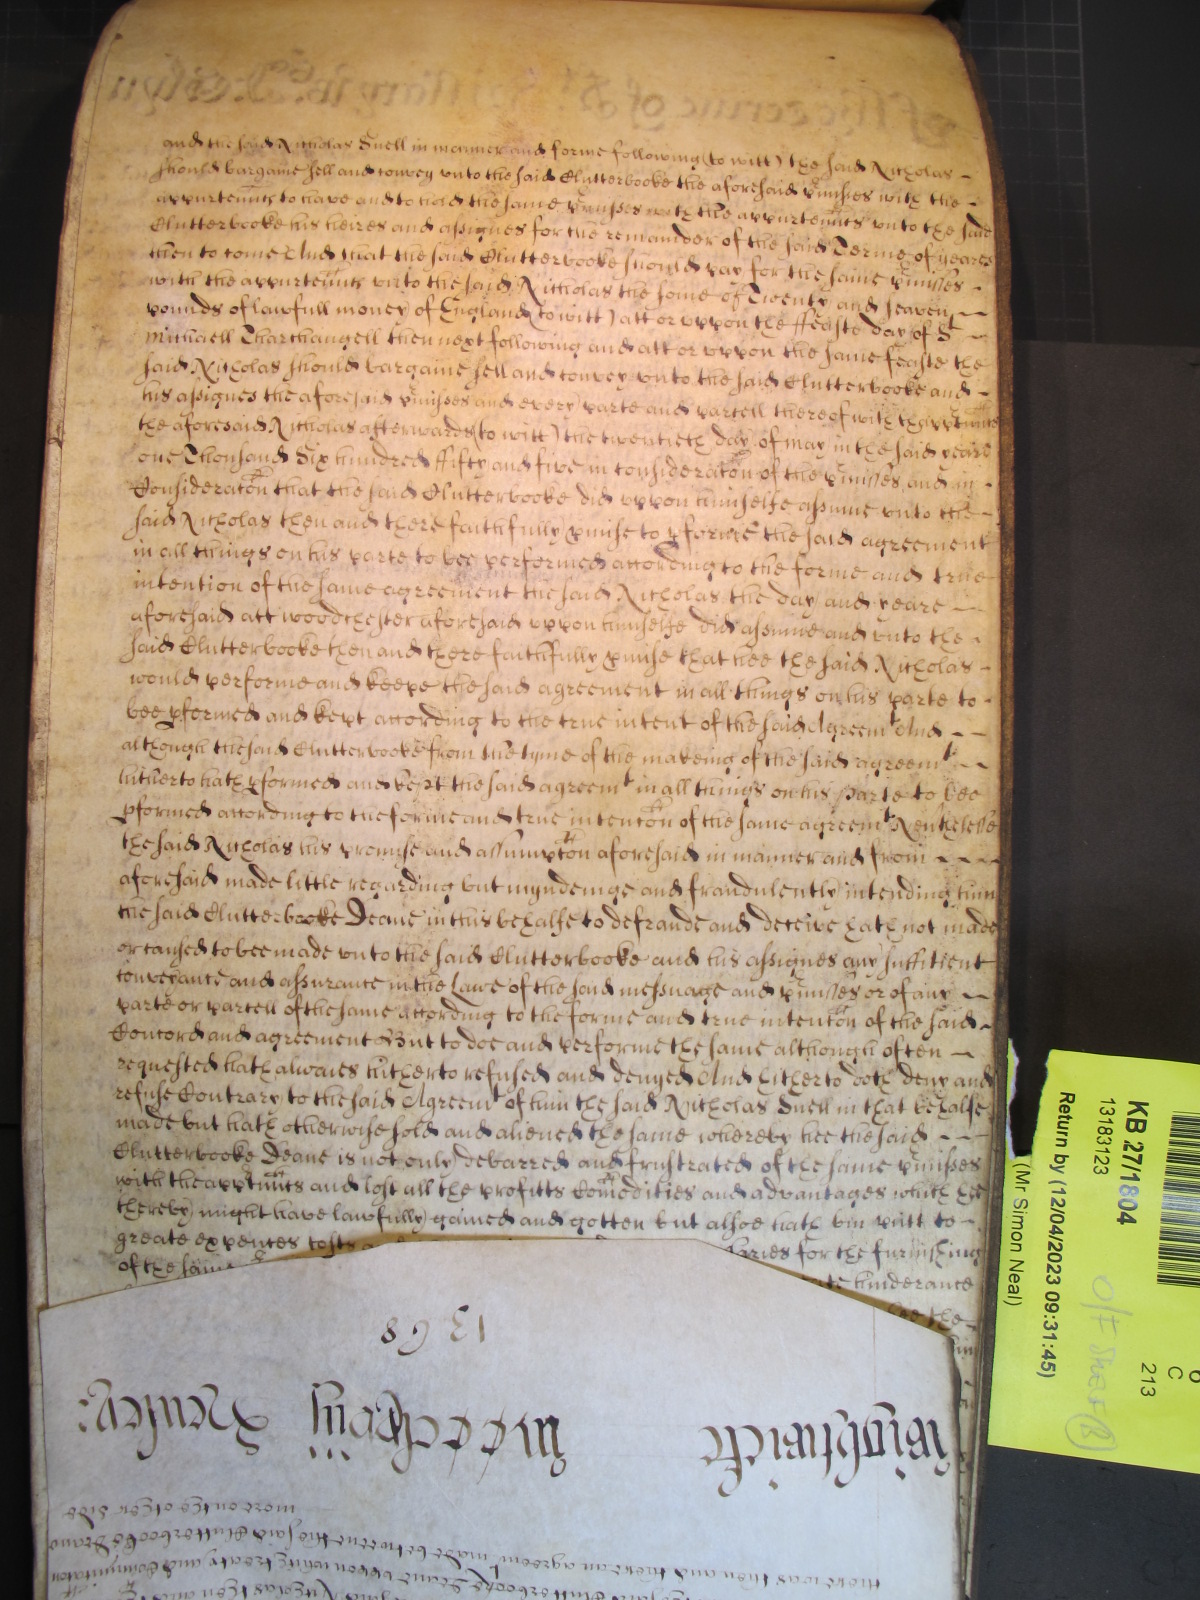 and the said Nicholas Snell in manner and forme following (to witt) the said Nicholas
should bargaine sell and convey unto the said Clutterbooke the aforesaid p'misses with the
appurten'nts to have and to hold the same p'misses with the appurten'nts unto the said
Clutterbooke his heires and assignes for the remainder of the said Terme of yeares
then to come And that the said Clutterbooke should pay for the same p'misses
with the appurten'nts unto the said Nicholas the some of Twenty and seaven
pounds of lawfull money of England (to witt) att or uppon the ffeaste day of St
Michaell Tharchangell then next following and att or uppon the same feaste the
said Nicholas should bargaine sell and convey unto the said Clutterbooke and
his assignes the aforesaid p'misses and every parte and parcell thereof with thappurten'nts
the aforesaid Nicholas afterwards (to witt) the twentieth day of May in the said yeare
one Thousand Six hundred ffifty and five in consideracon of the p'misses and in
Consideracon that the said Clutterbooke did uppon himselfe assume unto the
said Nicholas then and there faithfully p'mise to p'forme the said agreement
in all things on his parte to bee performed according to the forme and true
intention of the same agreement the said Nicholas the day and yeare
aforesaid att Woodchester aforesaid uppon himselfe did assume and unto the
said Clutterbooke then and there faithfully p'mise that hee the said Nicholas
would performe and keepe the said agreement in all things on his parte to
bee p'formed and kept according to the true intent of the said Agreemt And
although the said Clutterbooke from the tyme of the makeing of the said agreemt
hitherto hath p'formed and kept the said agreemt in all things on his parte to bee
p'formed according to the forme and true intencon of the same agreemt Nev'thelesse
the said Nicholas his promise and assumpcon aforesaid in manner and from
aforesaid made little regarding but myndeinge and fraudulently intending him
the said Clutterbooke Deane in this behalfe to defraude and deceive hath not made
or caused to bee made unto the said Clutterbooke and his assignes any sufficient
conveyance and assurance in the Lawe of the said messuage and p'misses or of any
parte or parcell of the same according to the forme and true intencon of the said
Concord and agreement But to doe and performe the same although often
requested hath alwaies hitherto refused and denyed And hitherto doth deny and
refuse Contrary to the said Agreemt of him the said Nicholas Snell in that behalfe
made but hath otherwise sold and aliened the same whereby hee the said
Clutterbooke Deane is not only debarred and frustrated of the same p'misses
with the appurt'nts and lost all the profitts Com'odities and advantages which hee
thereby might have lawfully gained and gotten but alsoe hath bin putt to
greate expences costs for the furnishing
of the same hinderance
hee the
1368
more on the other side
there was then and there an agreemt made betweene the said Clutterbooke Deane
KB 27/1804
13183123
Return by (12/04/2023 09:31:45)
(Mr Simon Neal)
C
213